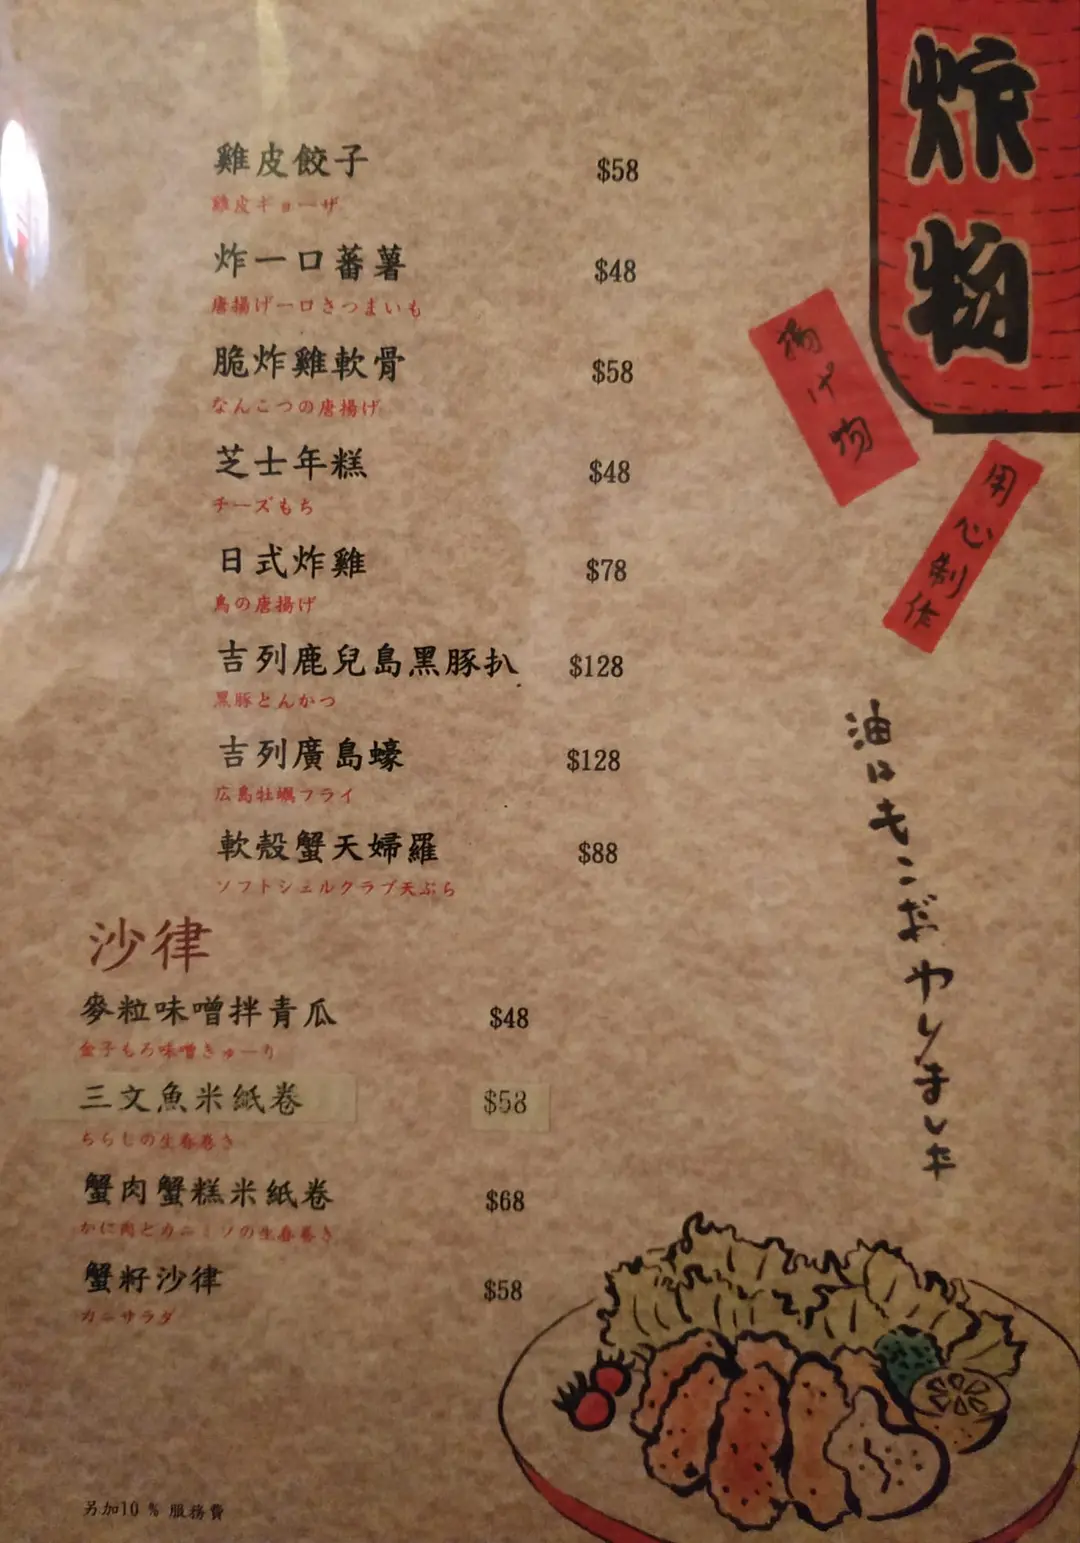 炸物
揚げ物
用心制作
油にもこだわりました
雞皮餃子 $58
雞皮ギョーザ
炸一口蕃薯 $48
唐揚げ一口さつまいも
脆炸雞軟骨 $58
なんこつの唐揚げ
芝士年糕 $48
チーズもち
日式炸雞 $78
鳥の唐揚げ
吉列鹿兒島黑豚扒 $128
黒豚とんかつ
吉列廣島蠔 $128
広島牡蠣フライ
軟殼蟹天婦羅 $88
ソフトシェルクラブ天ぷら
沙律
麥粒味噌拌青瓜 $48
金子もろ味噌きゅーり
三文魚米紙卷 $58
ちらしの生春巻き
蟹肉蟹糕米紙卷 $68
かに肉とカニミソの生春巻き
蟹籽沙律 $58
カニサラダ
另加10 % 服務費